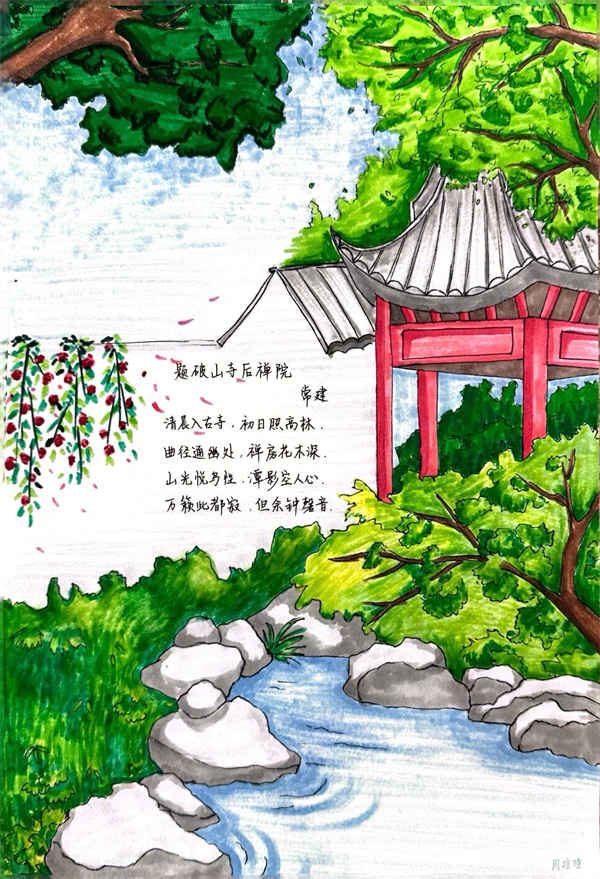 题破山寺后禅院
常建
清晨入古寺，初日照高林．
曲径通幽处，禅房花木深．
山光悦鸟性．潭影空人心．
万籁此都寂，但余钟磬音．